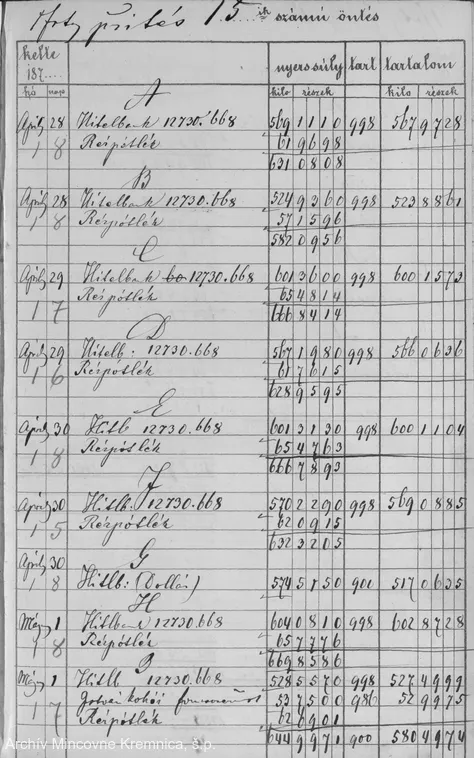 15 ik számú öntés
kelte
187
nyerssúly tart tartalom
hó nap kiló részek kiló részek
A
April 28 Hitelbank 12730.668 569 1110 998 567 9728
1 8 Rézpótlék 61 9698
631 0808
B
April 28 Hitelbank 12730.668 524 9360 998 523 8861
1 8 Rézpótlék 57 1596
582 0956
C
April 29 Hitelbank 12730.668 601 3600 998 600 1573
1 7 Rézpótlék 65 4814
666 8414
D
April 29 Hitelb. 12730.668 567 1980 998 566 0636
1 6 Rézpótlék 61 7615
628 9595
E
April 30 Hitlb 12730.668 601 3130 998 600 1104
1 8 Rézpótlék 65 4763
666 7893
F
April 30 Hitlb. 12730.668 570 2290 998 569 0885
1 5 Rézpótlék 62 0915
632 3205
April 30 G
1 8 Hitlb. (Dollár) 574 5150 900 517 0635
H
Máj 1 Hitlban 12730.668 604 0810 998 602 8728
1 8 Rézpótlék 65 7776
669 8586
Máj 1 Hitlb 12730.668 528 5570 998 527 4999
1 7 53 7500 986 52 9975
Rézpótlék 62 6901
644 9971 900 580 4974
Archív Mincovne Kremnica, š.p.